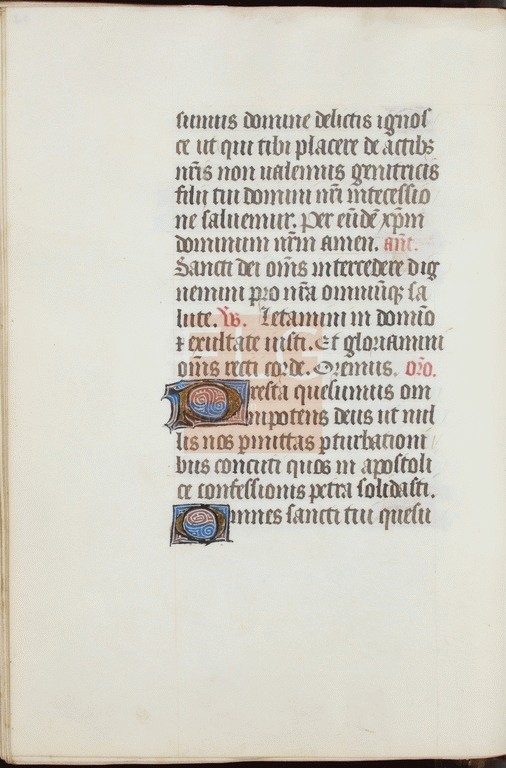 sumus domine delictis ignos
ce ut qui tibi placere de actibꝫ
nr̄is non ualemus genitricis
filii tui domini nr̄i intecessio
ne saluemur. Per eūdē xp̄m
dominum nr̄m amen. ant.
Sancti dei om̄s intercedere dig
nemini pro nr̄a omniūqꝫ sa
lute. V̄. Letamini in domīo
⁊ exultate iusti. Et gloriamini
om̄s recti corde. Oremus. or̄o.
Presta quesumus om
nipotens deus ut nul
lis nos ꝑmittas ꝑturbationi
bus concuti quos in apostoli
ce confessionis petra solidasti.
Omnes sancti tui quesu